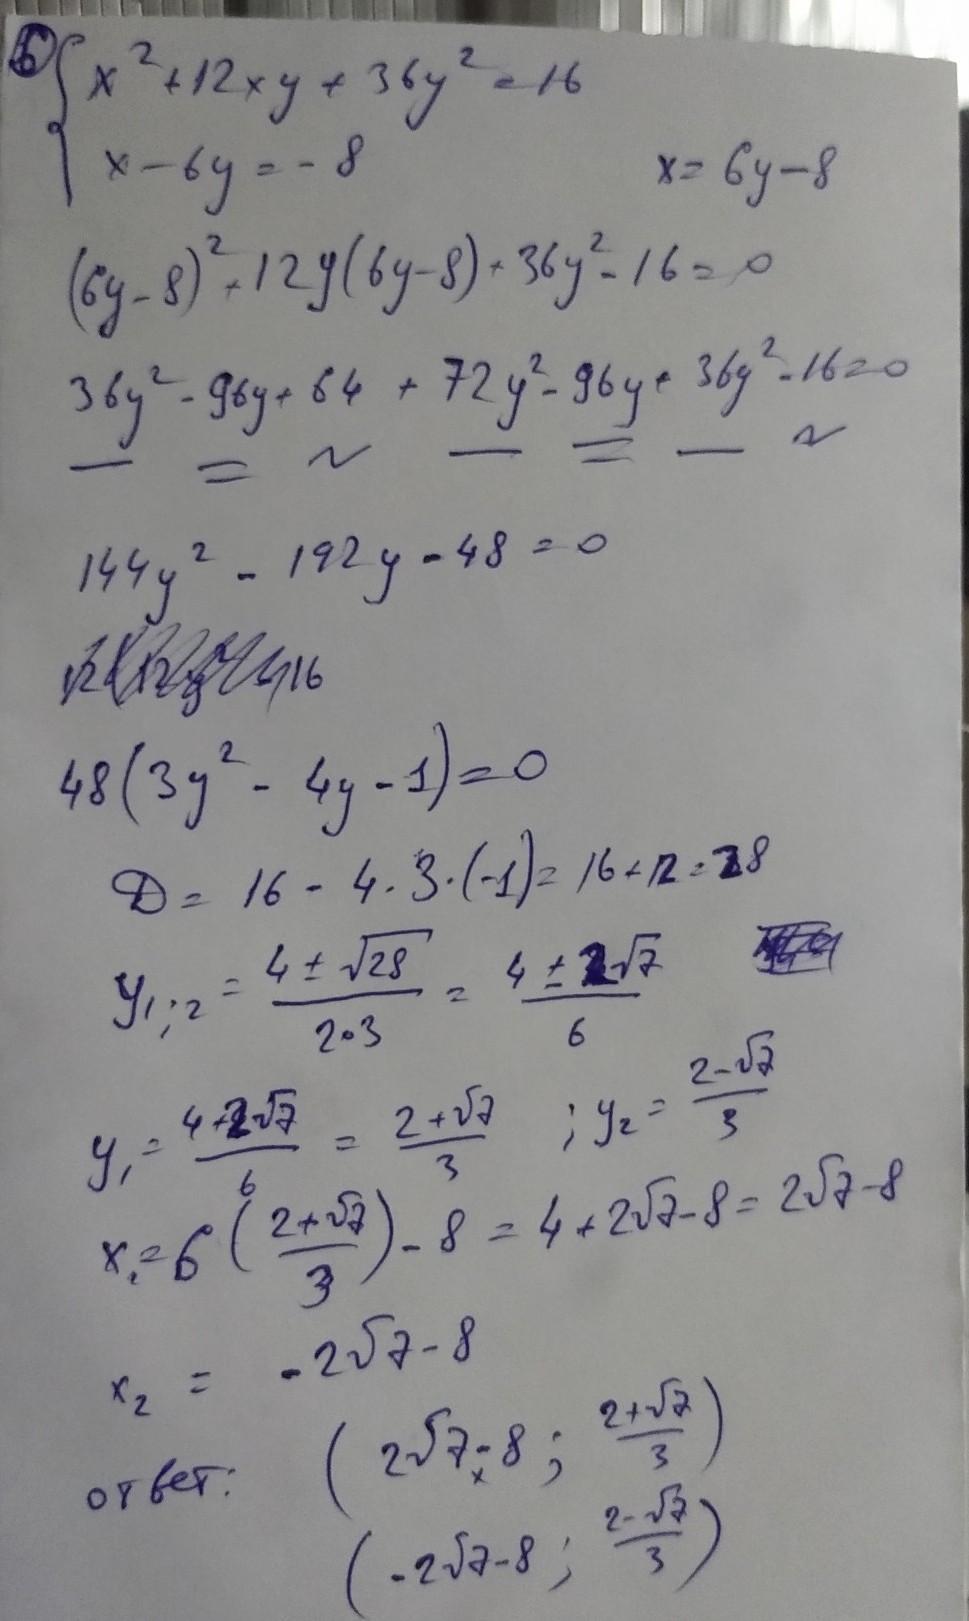 6 { x² + 12xy + 36y² = 16
x - 6y = - 8 x = 6y - 8
(6y - 8)² + 12y(6y - 8) + 36y² - 16 = 0
36y² - 96y + 64 + 72y² - 96y + 36y² - 16 = 0
144y² - 192y - 48 = 0
16
48(3y² - 4y - 1) = 0
D = 16 - 4 · 3 · (-1) = 16 + 12 = 28
y₁;₂ = (4 ± √28)/(2·3) = (4 ± 2√7)/6
y₁ = (4 + 2√7)/6 = (2 + √7)/3 ; y₂ = (2 - √7)/3
x₁ = 6 ((2 + √7)/3) - 8 = 4 + 2√7 - 8 = 2√7 - 8
x₂ = - 2√7 - 8
ответ: (2√7 - 8 ; (2 + √7)/3)
(-2√7 - 8 ; (2 - √7)/3)